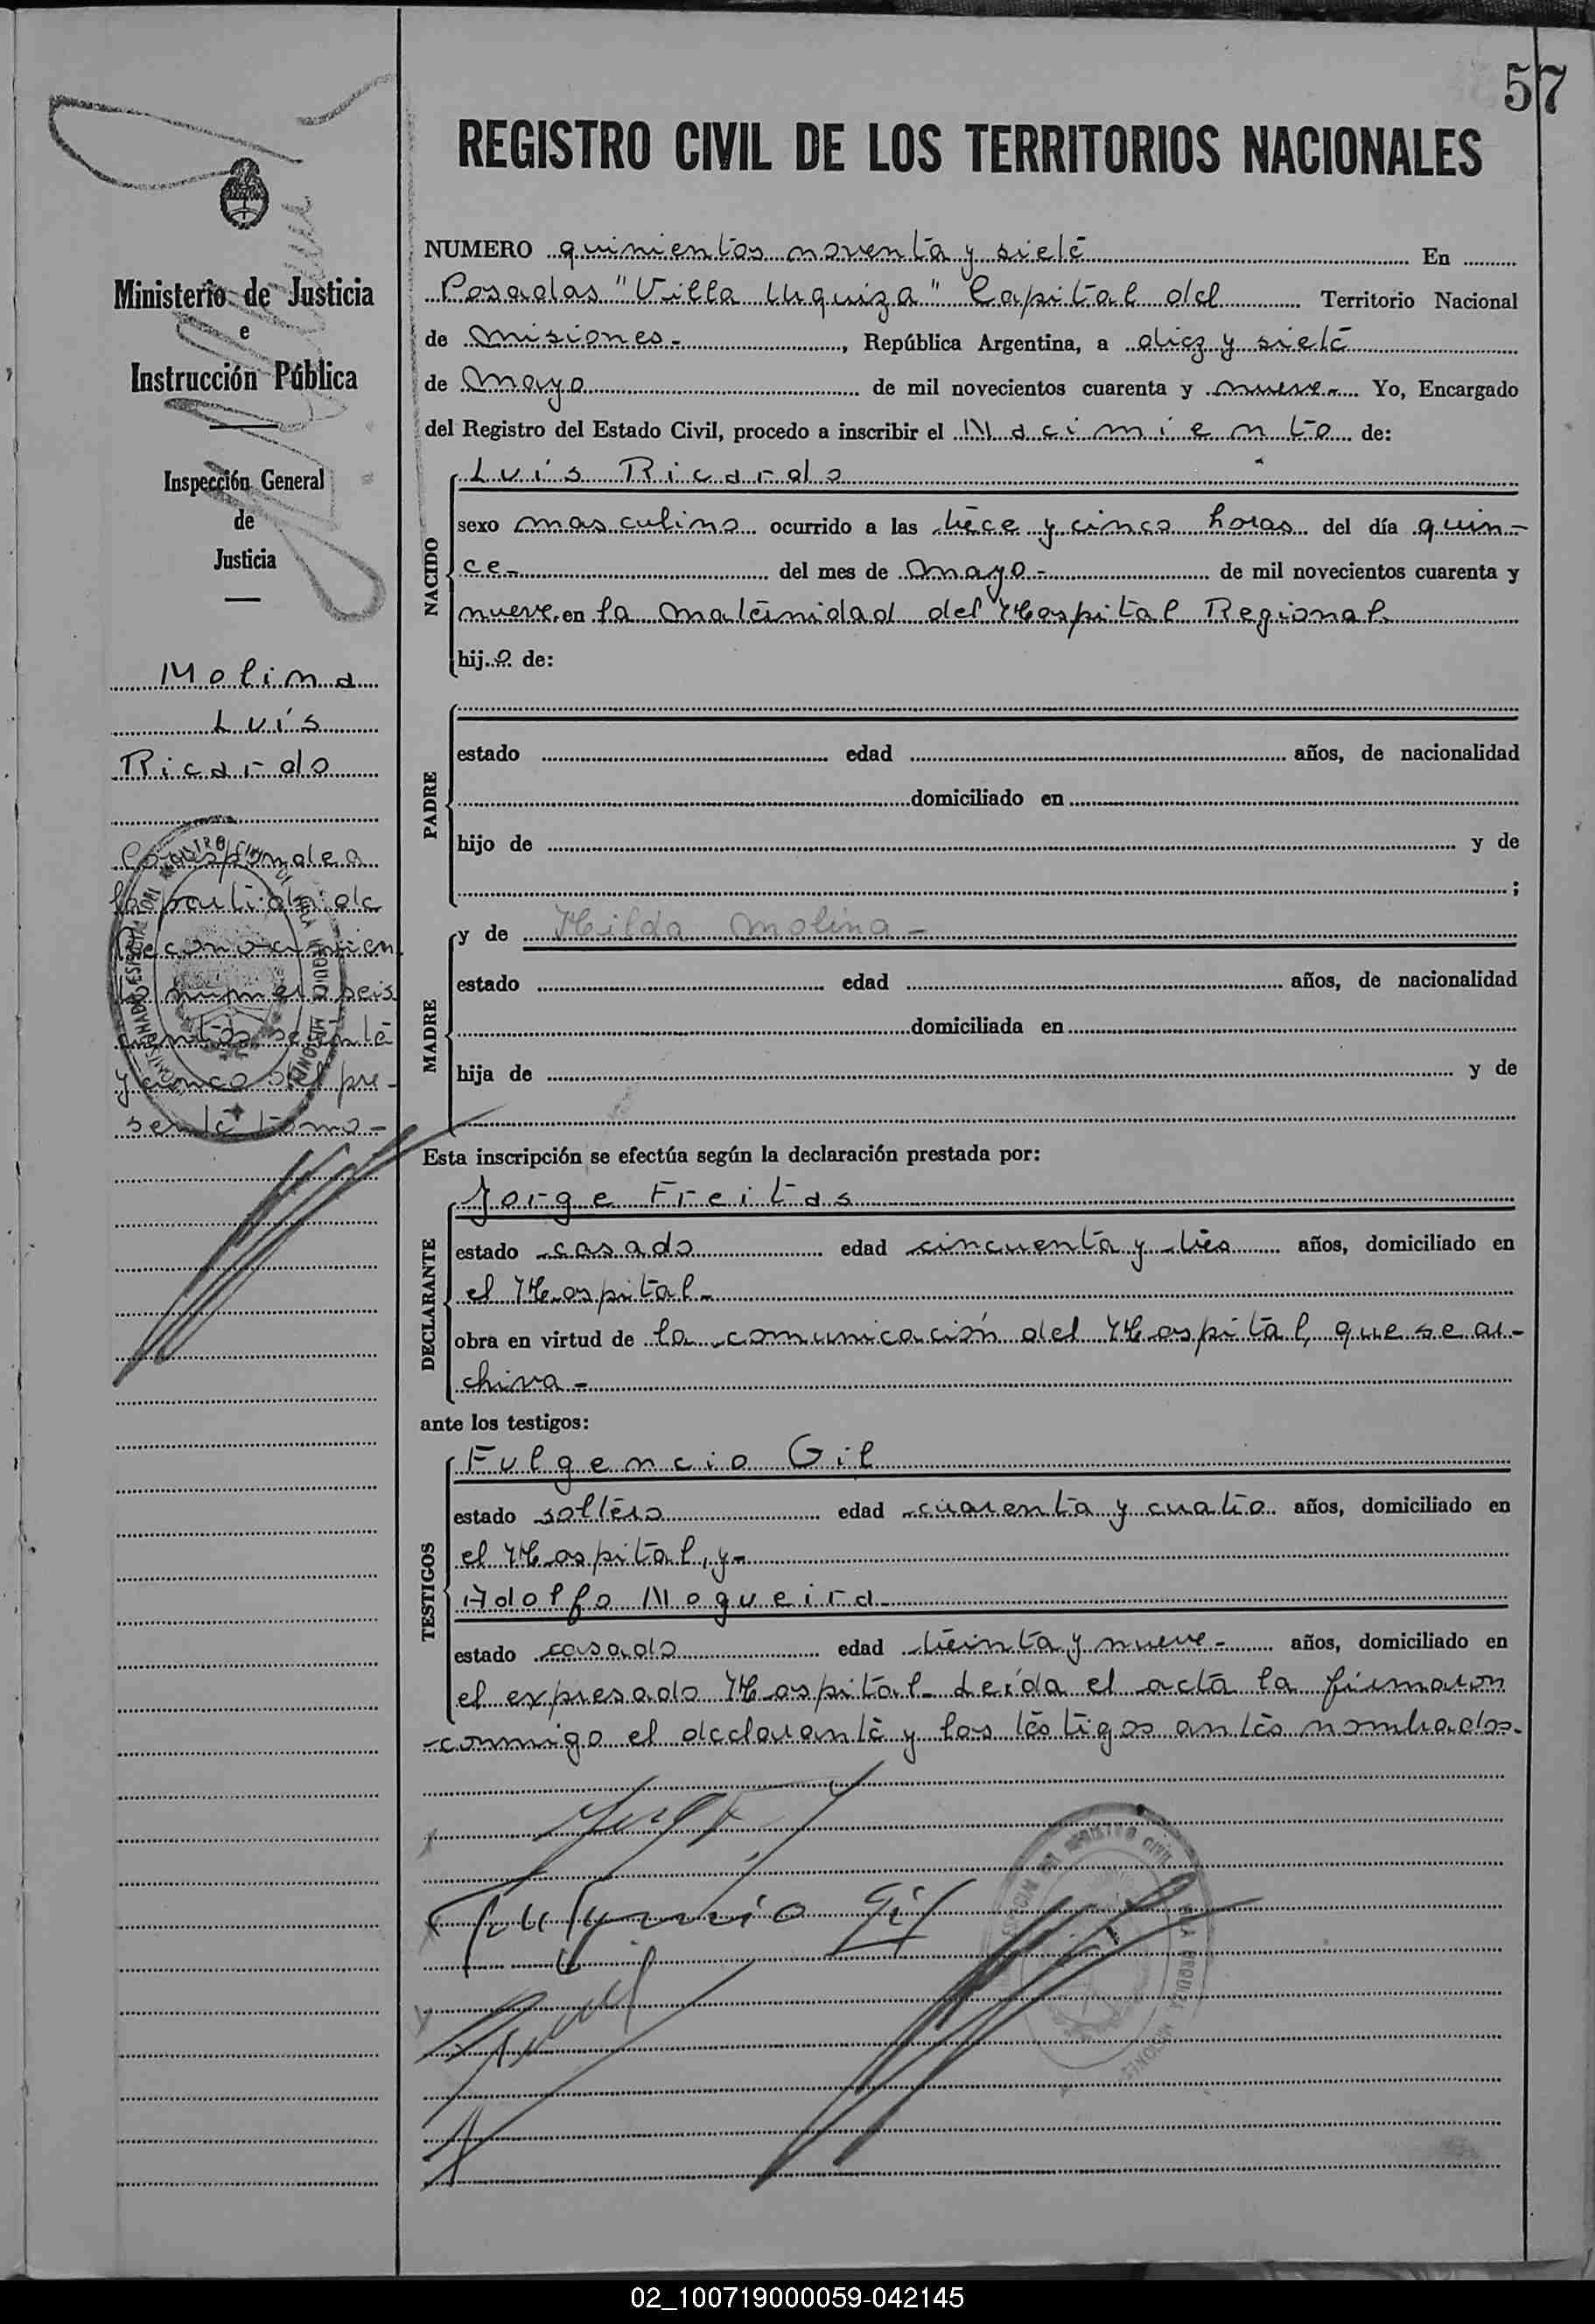 57
REGISTRO CIVIL DE LOS TERRITORIOS NACIONALES
Ministerio de Justicia
e
Instrucción Pública
Inspección General
de
Justicia
Molina
Luís
Ricardo
Corresponde a
la partida de
Reconocimien
to número seis
cientos setenta
y cinco del pre-
sente tomo-
NUMERO quinientos noventa y siete En
Posadas "Villa Urquiza" Capital del Territorio Nacional
de Misiones-, República Argentina, a diez y siete
de Mayo de mil novecientos cuarenta y nueve- Yo, Encargado
del Registro del Estado Civil, procedo a inscribir el Nacimiento de:
NACIDO
Luís Ricardo
sexo masculino ocurrido a las trece y cinco horas del día quin-
ce- del mes de Mayo- de mil novecientos cuarenta y
nueve, en la Maternidad del Hospital Regional
hijo de:
PADRE
estado edad años, de nacionalidad
domiciliado en
hijo de y de
;
MADRE
y de Hilda Molina-
estado edad años, de nacionalidad
domiciliada en
hija de y de
Esta inscripción se efectúa según la declaración prestada por:
DECLARANTE
Jorge Freitas
estado casado edad cincuenta y tres años, domiciliado en
el Hospital-
obra en virtud de la comunicación del Hospital, que se ar-
chiva-
ante los testigos:
TESTIGOS
Fulgencio Gil
estado soltero edad cuarenta y cuatro años, domiciliado en
el Hospital, y-
Adolfo Nogueira
estado casado edad treinta y nueve- años, domiciliado en
el expresado Hospital- Leída el acta la firmaron
conmigo el declarante y los testigos antes nombrados-
Fulgencio Gil
02_100719000059-042145